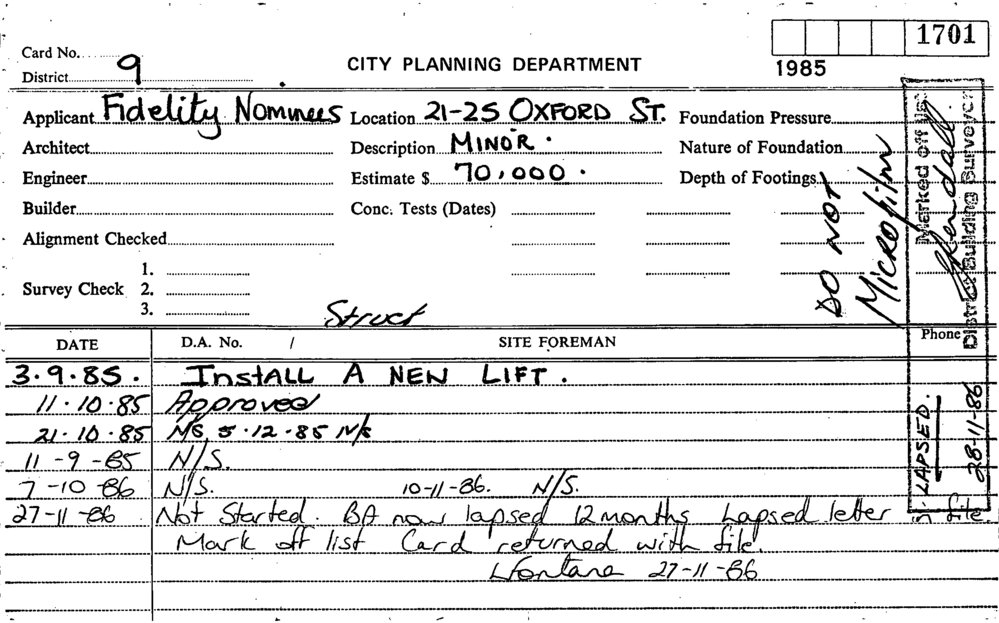 1701
1985
Card No. 9
District
CITY PLANNING DEPARTMENT
Applicant Fidelity Nominees Location 21-25 OXFORD ST. Foundation Pressure
Architect Description MINOR. Nature of Foundation
Engineer Estimate $ 70,000. Depth of Footings
Builder Conc. Tests (Dates)
Alignment Checked
1.
Survey Check 2.
3.
Struct
DO NOT
MICROfilm
Marked off list
District Building Surveyor
LAPSED.
28-11-86
DATE D.A. No. / SITE FOREMAN Phone
3.9.85. InstALL A NEW LIFT.
11.10.85 Approved
21.10.85 N/S 5.12.85 N/S
11-9-85 N/S.
7-10-86 N/S. 10-11-86. N/S.
27-11-86 Not Started. BA now lapsed 12 months Lapsed letter in file.
Mark off list Card returned with file.
27-11-86